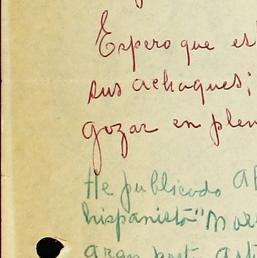 Espero que es
sus achaques;
gozar en plen
He publicado A
hispanista "Mar
gran poet